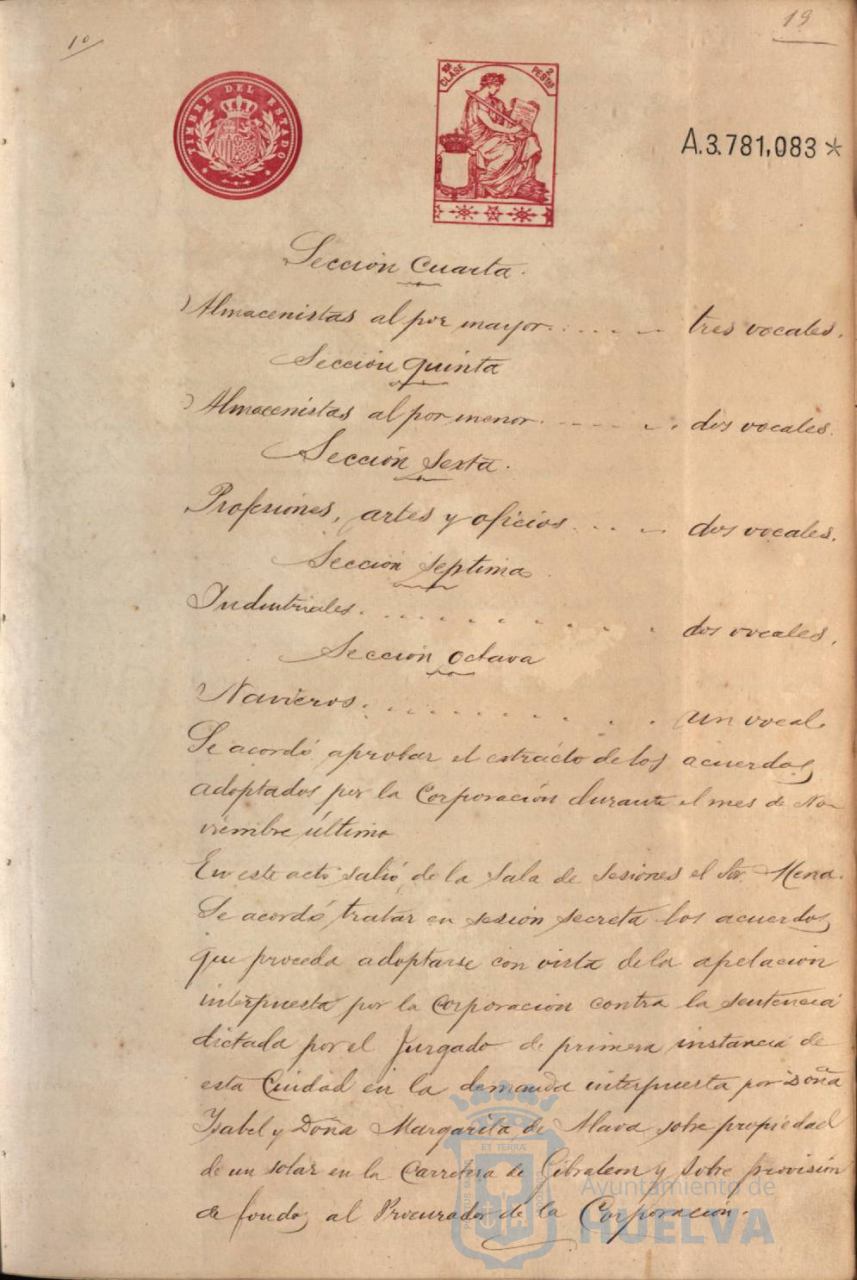 1º
19
TIMBRE DEL ESTADO
10ª CLASE 2 PESTAS
A.3.781,083*
Sección Cuarta.
Almacenistas al por mayor. . . . . . tres vocales.
Sección quinta
Almacenistas al por menor. . . . . . dos vocales.
Sección Sexta.
Profesiones, artes y oficios . . . . dos vocales.
Sección septima.
Industriales. . . . . . . . . . . dos vocales.
Sección octava
Navieros. . . . . . . . . . . un vocal.
Se acordó aprobar el extracto de los acuerdos
adoptados por la Corporación durante el mes de No-
viembre último
En este acto salió de la Sala de Sesiones el Sor. Mena.
Se acordó tratar en sesión secreta los acuerdos
que proceda adoptarse con vista de la apelación
interpuesta por la Corporación contra la sentencia
dictada por el Juzgado de primera instancia de
esta Ciudad en la demanda interpuesta por Doña
Isabel y Doña Margarita de Alava sobre propiedad
de un solar en la Carretera de Gibraleon y sobre provisión
de fondos al Procurador de la Corporación.
Ayuntamiento de
HUELVA